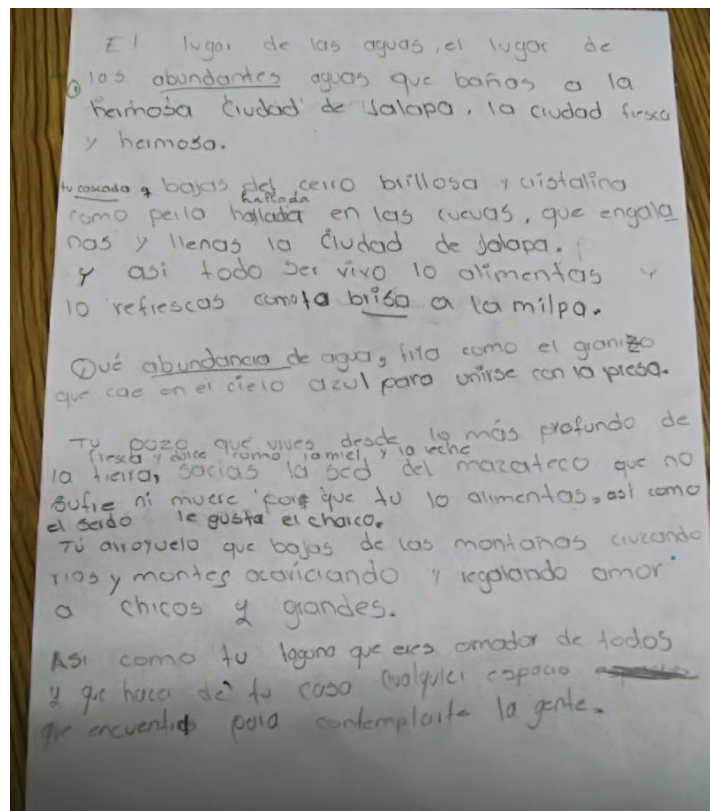 El lugar de las aguas, el lugar de
① los abundantes aguas que bañas a la
hermosa Ciudad de Jalapa, la ciudad fresca
y hermosa.
tu cascada q bajas del cerro brillosa y cristalina
hallada
como perla hallada en las cuevas, que engala
nas y llenas la Ciudad de Jalapa.
Y asi todo ser vivo lo alimentas y
lo refrescas como la brisa a la milpa.
Qué abundancia de agua, fria como el granizo
que cae en el cielo azul para unirse con la presa.
Tu pozo que vives desde lo más profundo de
fresca y dulce como la miel y la leche
la tierra, socias la sed del mazateco que no
sufre ni muere porque tu lo alimentas, así como
el serdo le gusta el charco.
Tú arroyuelo que bajas de las montañas cruzando
rios y montes acariciando y regalando amor
a chicos y grandes.
Asi como tu laguna que eres amador de todos
y que haces de tu casa cualquier espacio
que encuentras para contemplarte la gente.